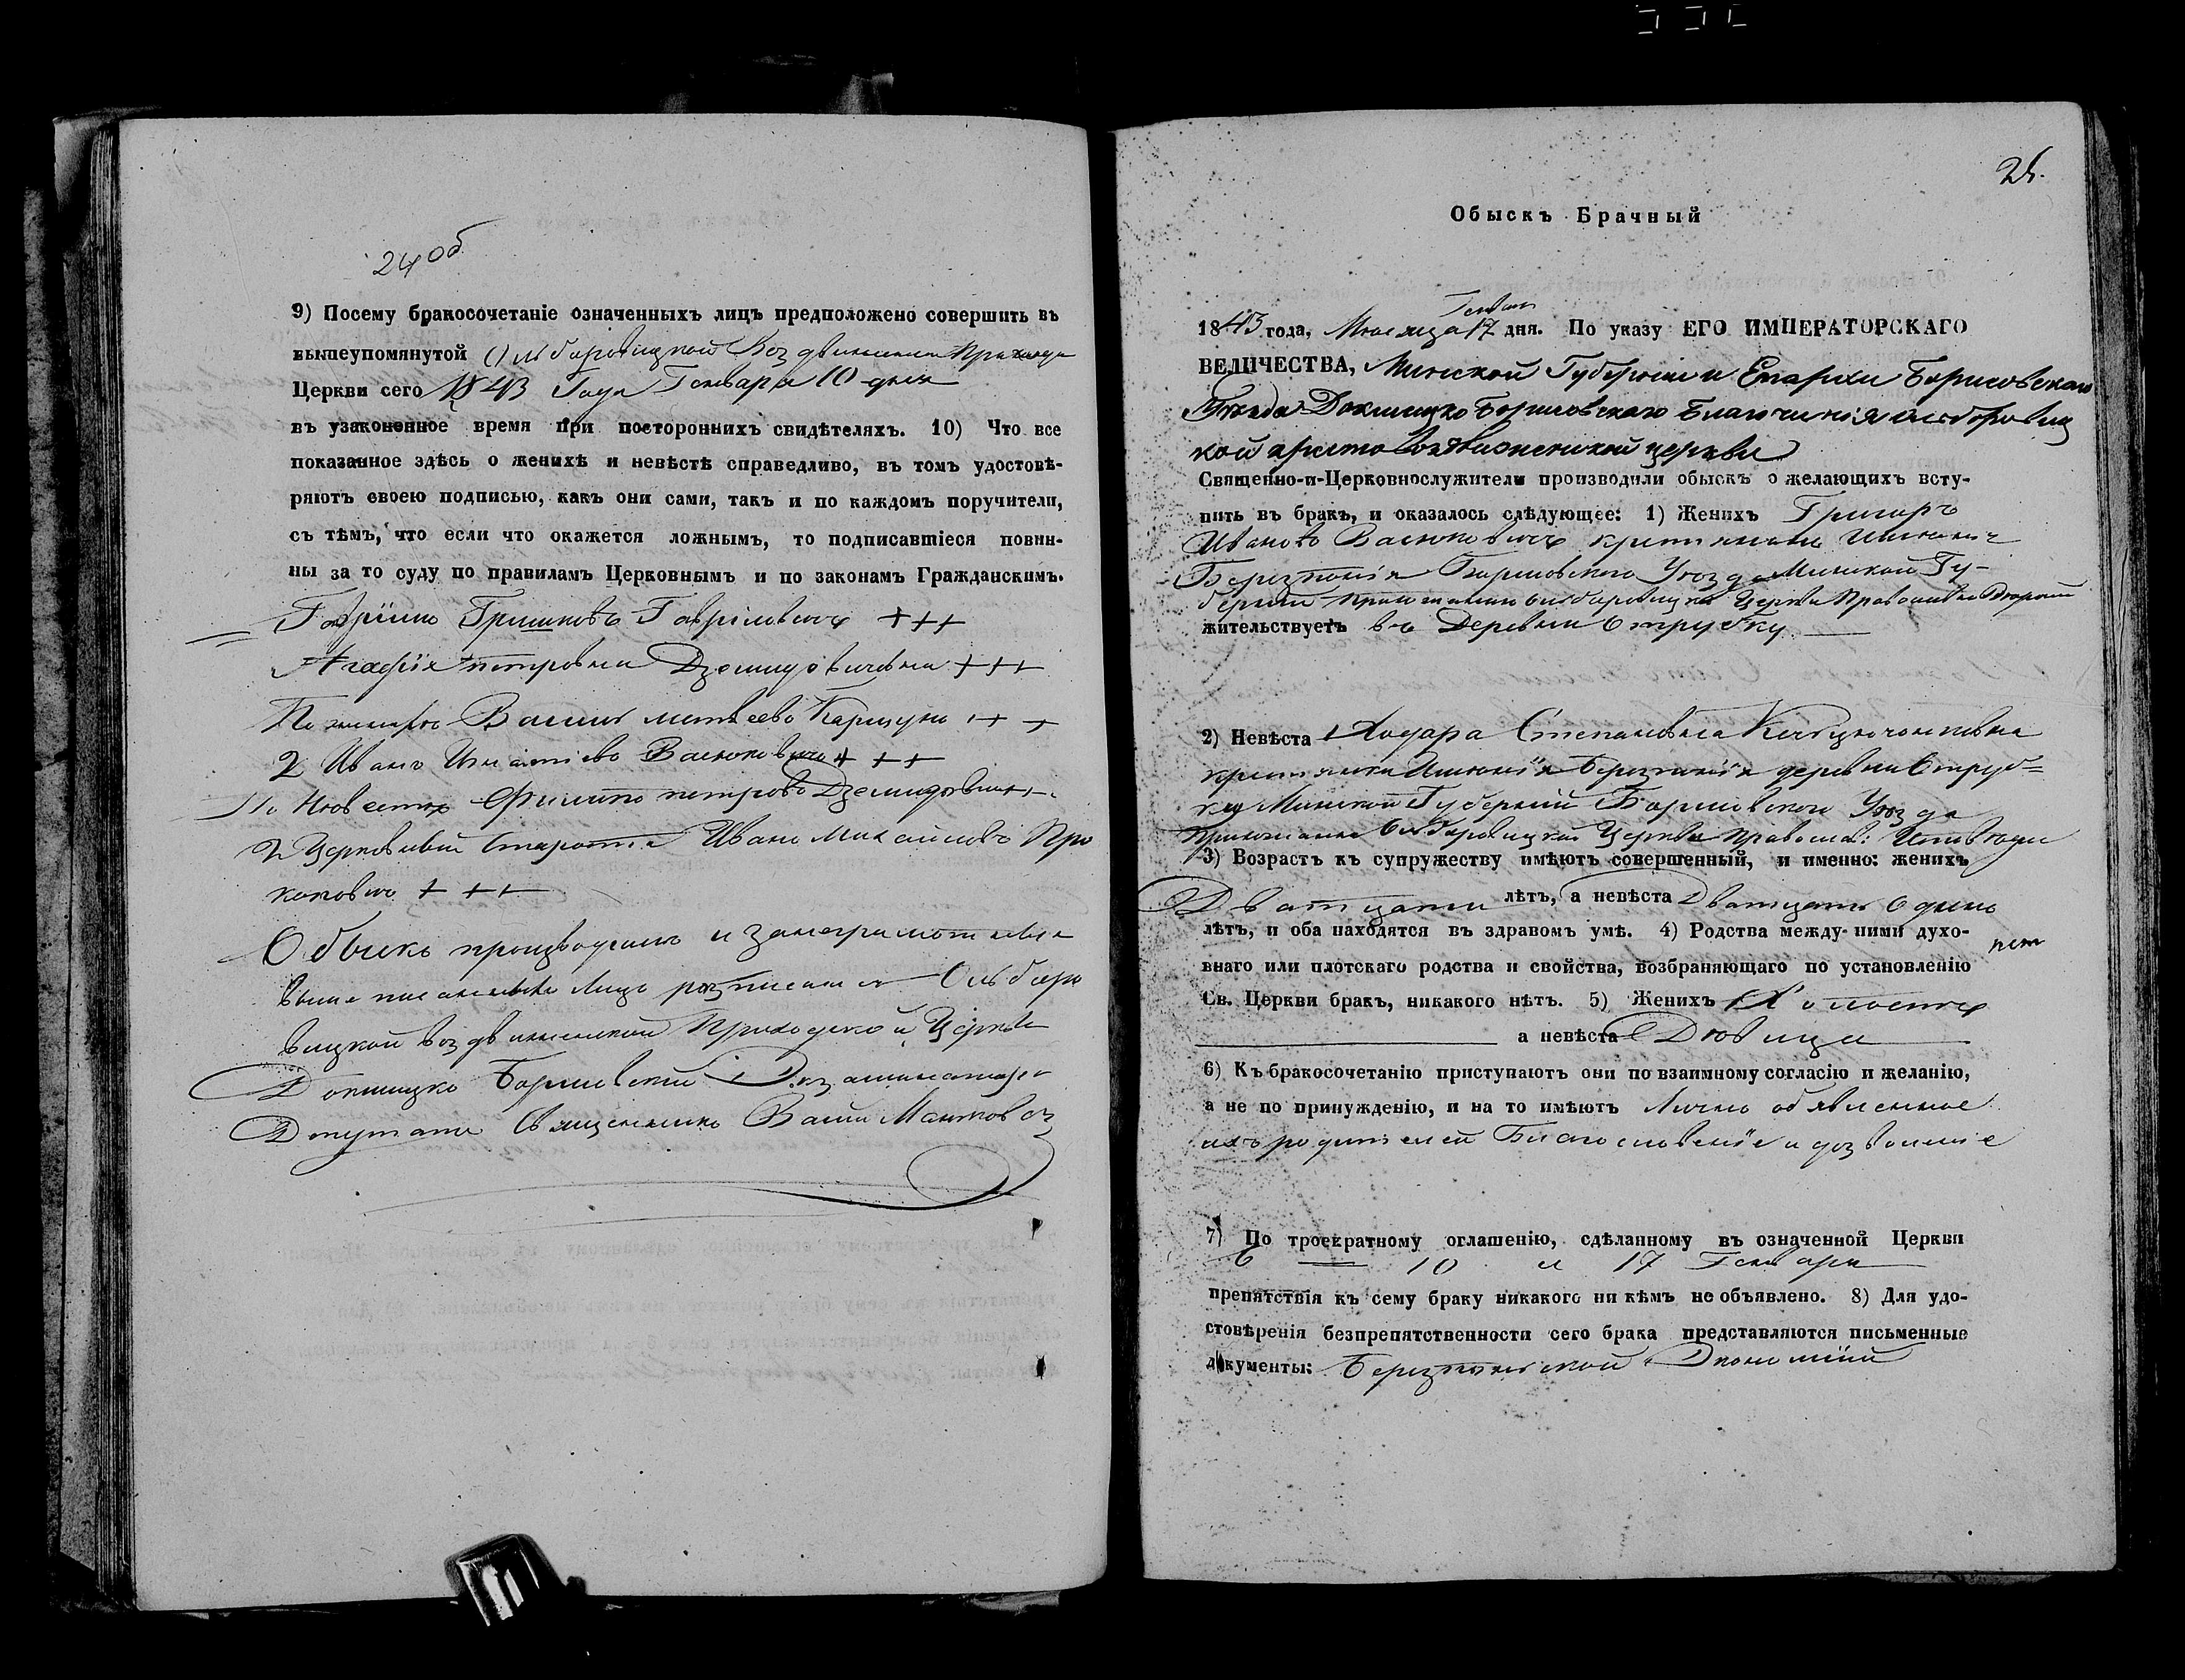 24 об
9) Посему бракосочетаніе означенныхъ лицъ предположено совершить въ
вышеупомянутой Ольборовицкой Воздвиженской
Церкви сего 1843 Года Генваря 10 дня
въ узаконенное время при постороннихъ свидѣтеляхъ. 10) Что все
показанное здѣсь о женихѣ и невѣстѣ справедливо, въ томъ удостовѣ-
ряютъ своею подписью, какъ они сами, такъ и по каждомъ поручители,
съ тѣмъ, что если что окажется ложнымъ, то подписавшіеся повин-
ны за то суду по правиламъ Церковнымъ и по законамъ Гражданскимъ.
Гришковъ Гавриловичъ +++
Агафія петровна Дземидовичовна +++
По женихѣ Василь матвеевъ + +
2 Иванъ Игнатіевъ Васюковичъ + ++
По Невестѣ Филипъ петровъ Дземидовичъ ++
2 Церковный Староста Иванъ михаиловъ Про
коповичъ + ++
Обыскъ производилъ и занеграмотныхъ
выше писанныхъ лицъ росписался Ольборо
вицкой воздвиженской Приходской Церкви
Докшицко Борисовскій Экзаминаторъ
Депутатъ Священникъ
25.
Обыскъ Брачный
Генваря
1843 года, Месяца 17 дня. По указу ЕГО ИМПЕРАТОРСКАГО
ВЕЛИЧЕСТВА, Минской Губерніи и Епархіи Борисовскаго
Уѣзда Докшицко Борисовскаго Благочинія Ольборовиц
кой кресто Воздвиженской церкви
Священно-и-Церковнослужители производили обыскъ о желающихъ всту-
пить въ бракъ, и оказалось слѣдующее: 1) Женихъ Григоръ
Ивановъ Васюковичъ крестьянинъ имѣнія
Березинскія Борисовского Уезда Минской Гу-
берніи Ольборовицкой Церкви
жительствуетъ въ Деревни Отрубку
2) Невѣста Ходора Степановна
крестьянка Имѣнія деревни Отруб=
ку Минской Губерніи Борисовского Уезда
прихожанка Ольборовицкой Церкви Православ:
3) Возрастъ къ супружеству имѣютъ совершенный, и именно: женихъ
Дватцати лѣтъ, а невѣста Дватцать одинъ
лѣтъ, и оба находятся въ здравомъ умѣ. 4) Родства между ними духо-
внаго или плотскаго родства и свойства, возбраняющаго по установленію нет
Св. Церкви бракъ, никакого нѣтъ. 5) Женихъ Холостъ
а невѣста Девица
6) Къ бракосочетанію приступаютъ они по взаимному согласію и желанію,
а не по принужденію, и на то имѣютъ Лично объявленное
ихъ родителей Благословеніе и дозволеніе
7) По троекратному оглашенію, сдѣланному въ означенной Церкви
6 10 и 17 Генваря
препятствія къ сему браку никакого ни кѣмъ не объявлено. 8) Для удо-
стовѣренія безпрепятственности сего брака представляются письменные
документы: Экономіи